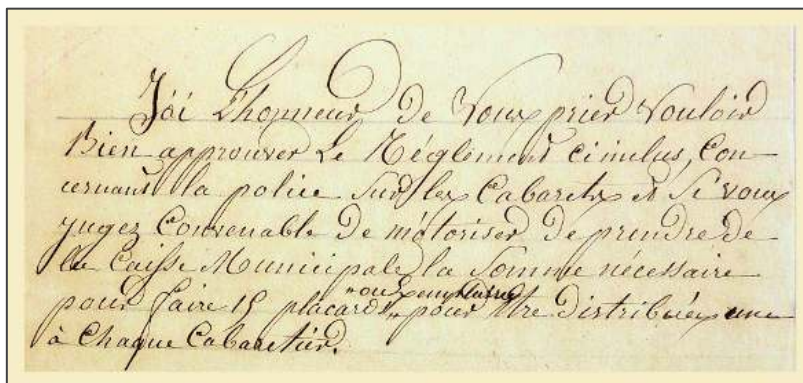 J'ái L'honneur De Vous prier Vouloir
Bien approuver Le Réglement ci inclus, Con-
cernant la police Sur les Cabarets et Si vous
jugez Convenable De m'otoriser De prendre de
la Caisse Municipale la Somme nécessaire
pour faire 15 placards "ou Exemplaires" pour être Distribuées une
à Chaque Cabaretier.